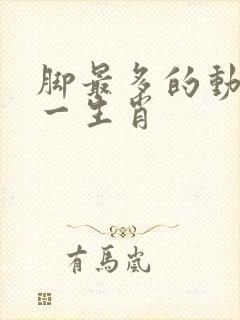 脚最多的動
一生肖
有馬嵐